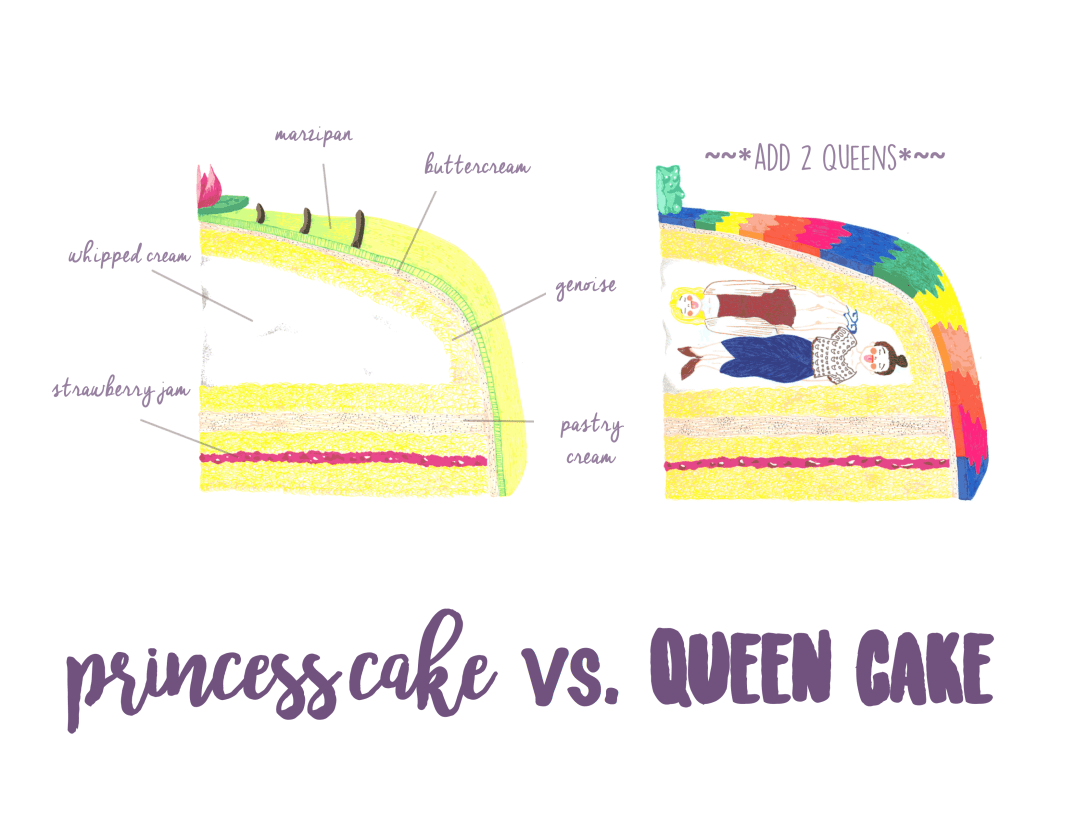 marzipan
buttercream
whipped cream
genoise
strawberry jam
pastry
cream
~~*ADD 2 QUEENS*~~
princess cake vs. QUEEN CAKE